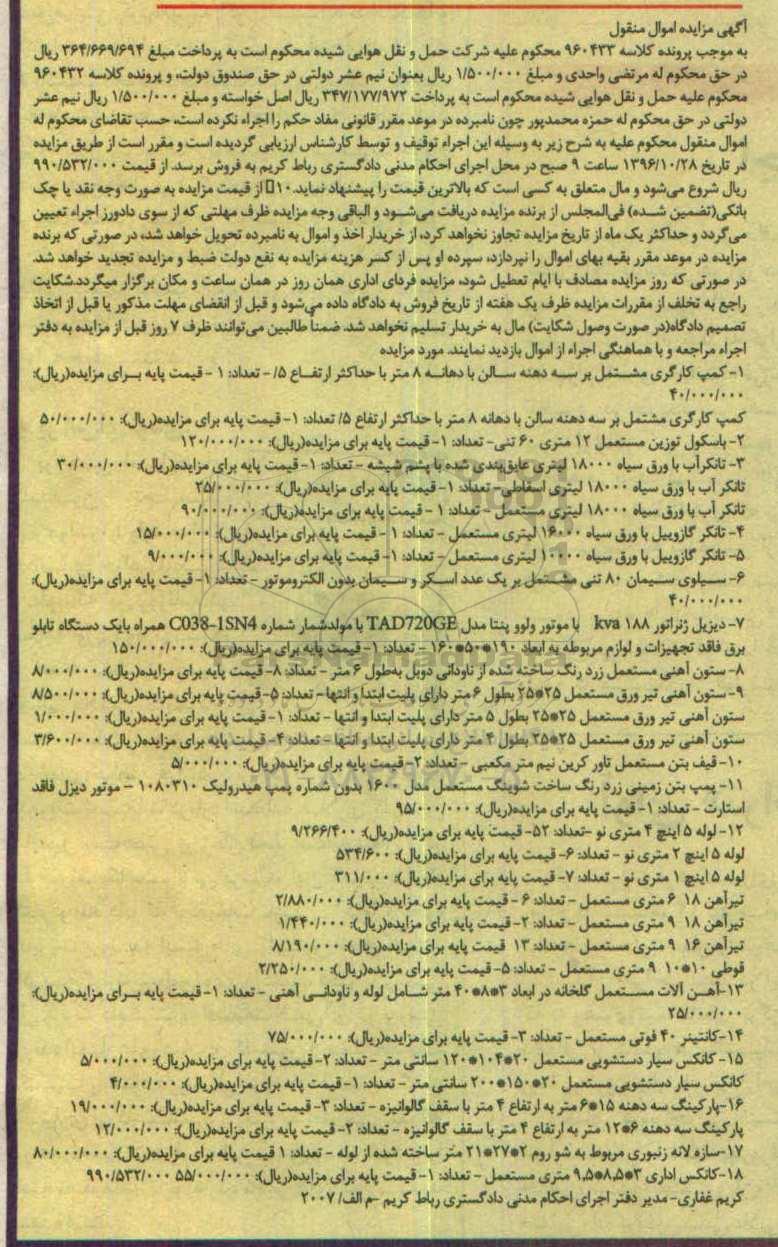 آگهی مزایده اموال منقول
به موجب پرونده کلاسه ۹۶۰۴۳۳ محکوم علیه شرکت حمل و نقل هوایی شیده محکوم است به پرداخت مبلغ ۳۶۴/۶۶۹/۶۹۴ ریال
در حق محکوم له مرتضی واحدی و مبلغ ۱/۵۰۰/۰۰۰ ریال بعنوان نیم عشر دولتی در حق صندوق دولت، و پرونده کلاسه ۹۶۰۴۳۲
محکوم علیه حمل و نقل هوایی شیده محکوم است به پرداخت ۳۴۷/۱۷۷/۹۷۲ ریال اصل خواسته و مبلغ ۱/۵۰۰/۰۰۰ ریال نیم عشر
دولتی در حق محکوم له حمزه محمدپور چون نامبرده در موعد مقرر قانونی مفاد حکم را اجراء نکرده است، حسب تقاضای محکوم له
اموال منقول محکوم علیه به شرح زیر به وسیله این اجراء توقیف و توسط کارشناس ارزیابی گردیده است و مقرر است از طریق مزایده
در تاریخ ۱۳۹۶/۱۰/۲۸ ساعت ۹ صبح در محل اجرای احکام مدنی دادگستری رباط کریم به فروش برسد. از قیمت ۹۹۰/۵۳۲/۰۰۰
ریال شروع می‌شود و مال متعلق به کسی است که بالاترین قیمت را پیشنهاد نماید. ۱۰ از قیمت مزایده به صورت وجه نقد یا چک
بانکی(تضمین شده) فی‌المجلس از برنده مزایده دریافت می‌شود و الباقی وجه مزایده ظرف مهلتی که از سوی دادورز اجراء تعیین
می‌گردد و حداکثر یک ماه از تاریخ مزایده تجاوز نخواهد کرد، از خریدار اخذ و اموال به نامبرده تحویل خواهد شد، در صورتی که برنده
مزایده در موعد مقرر بقیه بهای اموال را نپردازد، سپرده او پس از کسر هزینه مزایده به نفع دولت ضبط و مزایده تجدید خواهد شد.
در صورتی که روز مزایده مصادف با ایام تعطیل شود، مزایده فردای اداری همان روز در همان ساعت و مکان برگزار میگردد.شکایت
راجع به تخلف از مقررات مزایده ظرف یک هفته از تاریخ فروش به دادگاه داده می‌شود و قبل از انقضای مهلت مذکور یا قبل از اتخاذ
تصمیم دادگاه(در صورت وصول شکایت) مال به خریدار تسلیم نخواهد شد. ضمناً طالبین می‌توانند ظرف ۷ روز قبل از مزایده به دفتر
اجراء مراجعه و با هماهنگی اجراء از اموال بازدید نمایند. مورد مزایده
۱- کمپ کارگری مشتمل بر سه دهنه سالن با دهانه ۸ متر با حداکثر ارتفاع ۵/ - تعداد: ۱ - قیمت پایه برای مزایده(ریال):
۴۰/۰۰۰/۰۰۰
کمپ کارگری مشتمل بر سه دهنه سالن با دهانه ۸ متر با حداکثر ارتفاع ۵/ تعداد: ۱- قیمت پایه برای مزایده(ریال): ۵۰/۰۰۰/۰۰۰
۲- باسکول توزین مستعمل ۱۲ متری ۶۰ تنی- تعداد: ۱- قیمت پایه برای مزایده(ریال): ۱۲۰/۰۰۰/۰۰۰
۳- تانکرآب با ورق سیاه ۱۸۰۰۰ لیتری عایق‌بندی شده با پشم شیشه - تعداد: ۱- قیمت پایه برای مزایده(ریال): ۳۰/۰۰۰/۰۰۰
تانکر آب با ورق سیاه ۱۸۰۰۰ لیتری اسقاطی- تعداد: ۱- قیمت پایه برای مزایده(ریال): ۲۵/۰۰۰/۰۰۰
تانکر آب با ورق سیاه ۱۸۰۰۰ لیتری مستعمل - تعداد: ۱ - قیمت پایه برای مزایده(ریال): ۹۰/۰۰۰/۰۰۰
۴- تانکر گازوییل با ورق سیاه ۱۶۰۰۰ لیتری مستعمل - تعداد: ۱ - قیمت پایه برای مزایده(ریال): ۱۵/۰۰۰/۰۰۰
۵- تانکر گازوییل با ورق سیاه ۱۰۰۰۰ لیتری مستعمل - تعداد: ۱ - قیمت پایه برای مزایده(ریال): ۹/۰۰۰/۰۰۰
۶- سیلوی سیمان ۸۰ تنی مشتمل بر یک عدد اسکر و سیمان بدون الکتروموتور - تعداد: ۱- قیمت پایه برای مزایده(ریال):
۴۰/۰۰۰/۰۰۰
۷- دیزیل ژنراتور ۱۸۸ kva با موتور ولوو پنتا مدل TAD720GE با مولدشمار شماره C038-1SN4 همراه بایک دستگاه تابلو
برق فاقد تجهیزات و لوازم مربوطه به ابعاد ۱۹۰*۵۰*۱۶۰ - تعداد: ۱- قیمت پایه برای مزایده(ریال): ۱۵۰/۰۰۰/۰۰۰
۸- ستون آهنی مستعمل زرد رنگ ساخته شده از ناودانی دوبل به‌طول ۶ متر - تعداد: ۸- قیمت پایه برای مزایده(ریال): ۸/۰۰۰/۰۰۰
۹- ستون آهنی تیر ورق مستعمل ۲۵*۲۵ بطول ۶ متر دارای پلیت ابتدا و انتها - تعداد: ۵- قیمت پایه برای مزایده(ریال): ۸/۵۰۰/۰۰۰
ستون آهنی تیر ورق مستعمل ۲۵*۲۵ بطول ۵ متر دارای پلیت ابتدا و انتها - تعداد: ۱- قیمت پایه برای مزایده(ریال): ۱/۰۰۰/۰۰۰
ستون آهنی تیر ورق مستعمل ۲۵*۲۵ بطول ۴ متر دارای پلیت ابتدا و انتها - تعداد: ۴- قیمت پایه برای مزایده(ریال): ۳/۶۰۰/۰۰۰
۱۰- قیف بتن مستعمل تاور کرین نیم متر مکعبی - تعداد: ۲- قیمت پایه برای مزایده(ریال): ۵/۰۰۰/۰۰۰
۱۱- پمپ بتن زمینی زرد رنگ ساخت شوینگ مستعمل مدل ۱۶۰۰ بدون شماره پمپ هیدرولیک ۱۰۸۰۳۱۰ – موتور دیزل فاقد
استارت - تعداد: ۱- قیمت پایه برای مزایده(ریال): ۹۵/۰۰۰/۰۰۰
۱۲- لوله ۵ اینچ ۴ متری نو -تعداد: ۵۲- قیمت پایه برای مزایده(ریال): ۹/۲۶۶/۴۰۰
لوله ۵ اینچ ۲ متری نو - تعداد: ۶- قیمت پایه برای مزایده(ریال): ۵۳۴/۶۰۰
لوله ۵ اینچ ۱ متری نو - تعداد: ۷- قیمت پایه برای مزایده(ریال): ۳۱۱/۰۰۰
تیرآهن ۱۸ ۶ متری مستعمل - تعداد: ۶ - قیمت پایه برای مزایده(ریال): ۲/۸۸۰/۰۰۰
تیرآهن ۱۸ ۹ متری مستعمل - تعداد: ۲- قیمت پایه برای مزایده(ریال): ۱/۴۴۰/۰۰۰
تیرآهن ۱۶ ۹ متری مستعمل - تعداد: ۱۳ قیمت پایه برای مزایده(ریال): ۸/۱۹۰/۰۰۰
قوطی ۱۰*۱۰ ۹ متری مستعمل - تعداد: ۵- قیمت پایه برای مزایده(ریال): ۲/۲۵۰/۰۰۰
۱۳-آهن آلات مستعمل گلخانه در ابعاد ۳*۸*۴۰ متر شامل لوله و ناودانی آهنی - تعداد: ۱- قیمت پایه برای مزایده(ریال):
۲۵/۰۰۰/۰۰۰
۱۴-کانتینر ۴۰ فوتی مستعمل - تعداد: ۳- قیمت پایه برای مزایده(ریال): ۷۵/۰۰۰/۰۰۰
۱۵- کانکس سیار دستشویی مستعمل ۲۰*۱۰۴*۱۲۰ سانتی متر - تعداد: ۲- قیمت پایه برای مزایده(ریال): ۵/۰۰۰/۰۰۰
کانکس سیار دستشویی مستعمل ۲۰*۱۵۰*۲۰۰ سانتی متر - تعداد: ۱- قیمت پایه برای مزایده(ریال): ۴/۰۰۰/۰۰۰
۱۶-پارکینگ سه دهنه ۱۵*۶ متر به ارتفاع ۴ متر با سقف گالوانیزه - تعداد: ۳- قیمت پایه برای مزایده(ریال): ۱۹/۰۰۰/۰۰۰
پارکینگ سه دهنه ۶*۱۲ متر به ارتفاع ۴ متر با سقف گالوانیزه - تعداد: ۲- قیمت پایه برای مزایده(ریال): ۱۲/۰۰۰/۰۰۰
۱۷-سازه لانه زنبوری مربوط به شو روم ۲*۲۷*۲۱ متر ساخته شده از لوله - تعداد: ۱ قیمت پایه برای مزایده(ریال): ۸۰/۰۰۰/۰۰۰
۱۸-کانکس اداری ۳*۸,۵*۹,۵ متری مستعمل - تعداد: ۱- قیمت پایه برای مزایده(ریال): ۵۵/۰۰۰/۰۰۰ ۹۹۰/۵۳۲/۰۰۰
کریم غفاری- مدیر دفتر اجرای احکام مدنی دادگستری رباط کریم -م الف/ ۲۰۰۷